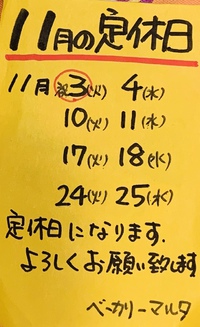 11月の定休日
11月 ㊗3(火) 4(水)
10(火) 11(水)
17(火) 18(水)
24(火) 25(水)
定休日になります.
よろしくお願い致します
ベーカリーマルタ